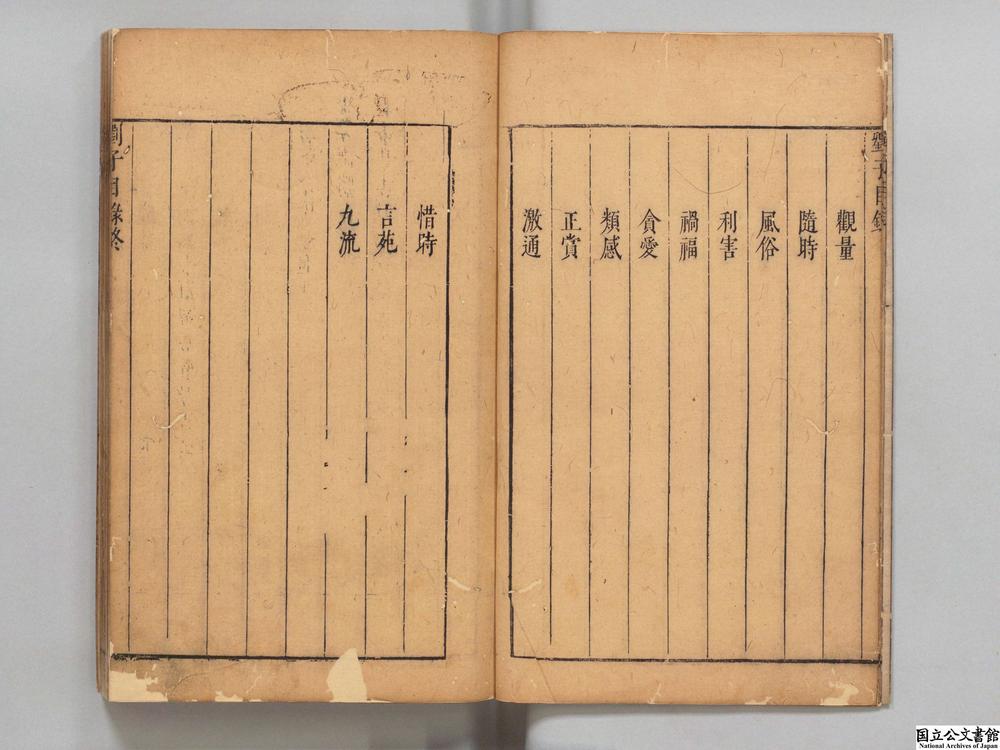 劉子目錄
觀量
隨時
風俗
利害
禍福
貪愛
類感
正賞
激通
惜時
言苑
九流
劉子目錄終
国立公文書館
National Archives of Japan